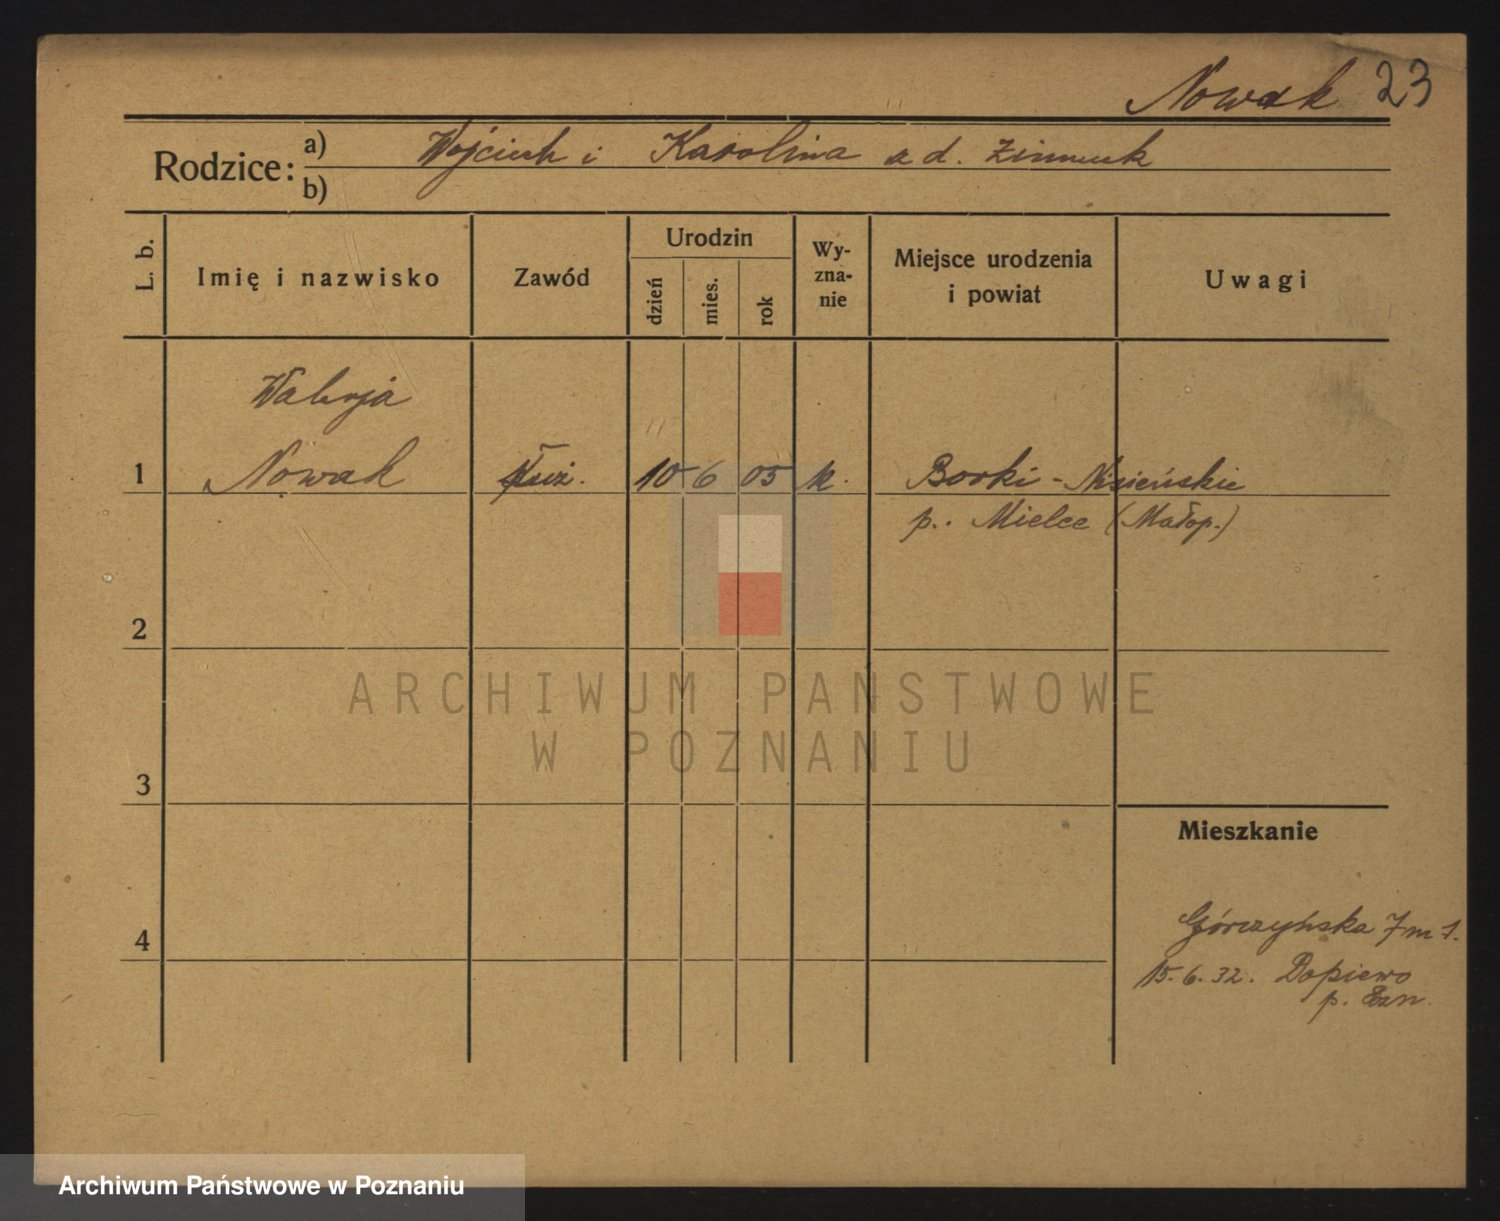 Nowak 23
Rodzice: a) Wojciech i Karolina z d.
b)
L. b.
Imię i nazwisko
Zawód
Urodzin
dzień
mies.
rok
Wy-
zna-
nie
Miejsce urodzenia
i powiat
Uwagi
Walerja
1 Nowak służ. 10 6 05 k. Borki - Nisieńskie
p. Mielec (Małop.)
2
3
Mieszkanie
4
Górczyńska 7 m 1.
15.6.32. Dopiewo
p.
ARCHIWUM PAŃSTWOWE
W POZNANIU
Archiwum Państwowe w Poznaniu